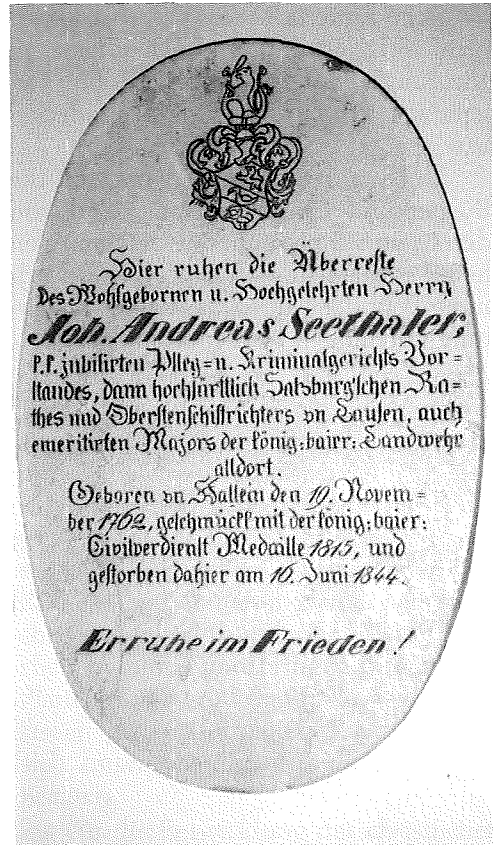 Hier ruhen die Überreste
des Wohlgebornen u. Hochgelehrten Herrn
Joh. Andreas Seethaler,
k.k. jubilirten Pfleg=u. Kriminalgerichts Vor=
standes, dann hochfürstlich Salzburg'schen Ra=
thes und Oberstenschifrichters vn Laufen, auch
emeritirten Majors der könig: baier: Landwehr
alldort.
Geboren vn Hallein den 19. Novem=
ber 1762, geschmückt mit der könig: baier:
Civilverdienst Medaille 1815, und
gestorben dahier am 16. Juni 1844.
Er ruhe im Frieden!